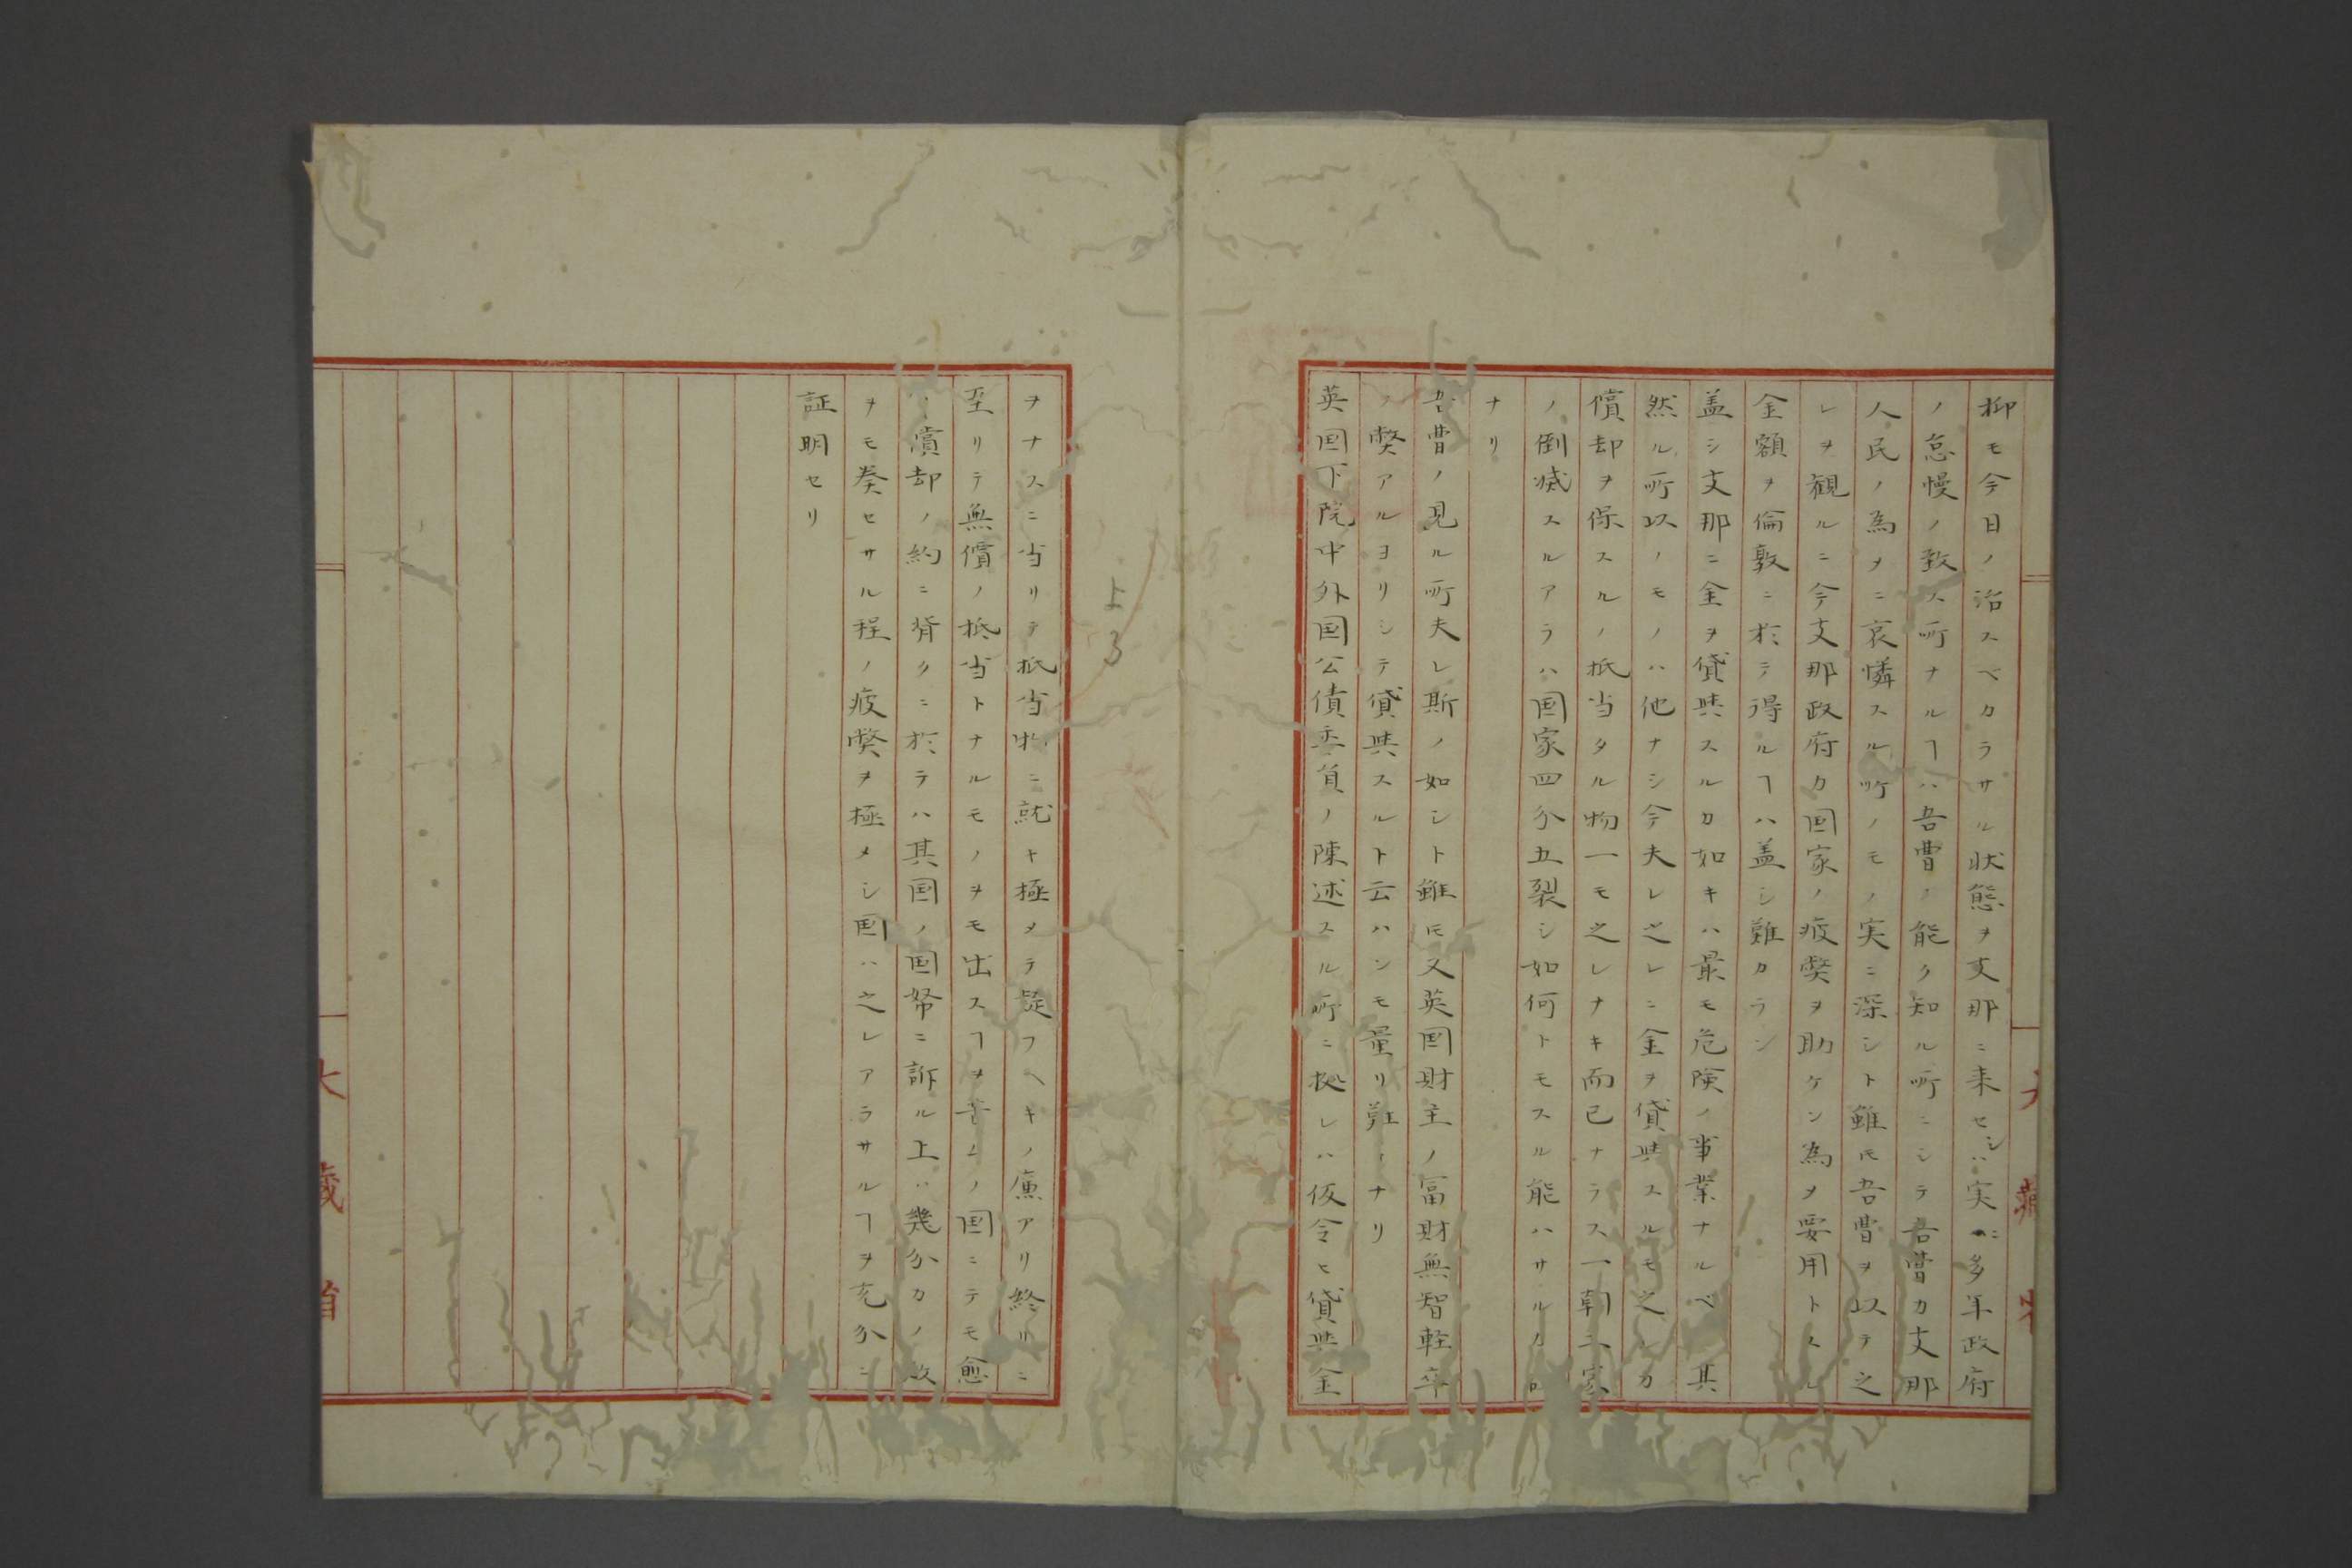 抑モ今日ノ治スベカラサル状態ヲ支那ニ来セシハ実ニ多年政府
ノ怠慢ノ致ス所ナルヿハ吾曹ノ能ク知ル所ニシテ吾曹カ支那
人民ノ為メニ哀憐スル所ノモノ実ニ深シト雖𪜈吾曹ヲ以テ之
レヲ観ルニ今支那政府カ国家ノ疲弊ヲ助ケン為メ要用トスル
金額ヲ倫敦ニ於テ得ルヿハ盖シ難カラン
盖シ支那ニ金ヲ貸与スルカ如キハ最モ危険ノ事業ナルベ其
然ル所以ノモノハ他ナシ今夫レ之レニ金ヲ貸与スルモ之レカ
償却ヲ保スルノ抵当タル物一モ之レナキ而已ナラス一朝二家
ノ倒滅スルアラハ国家四分五裂シ如何トモスル能ハサルカ
ナリ
吾曹ノ見ル所夫レ斯ノ如シト雖𪜈又英国財主ノ富財無智軽卒
ノ弊アルヨリシテ貸与スルト云ハンモ量リ難ナリ
英国下院中外国公債委員ノ陳述スル所ニ拠レハ仮令ヒ貸与金
ヲナスニ当リテ抵当物ニ就キ極メテ疑フヘキノ廉アリ終リニ
至リテ無償ノ抵当トナルモノヲモ出スヿヲノ国ニテモ愈
償却ノ約ニ背クニ於テハ其国ノ国帑ニ訴ル上ハ幾分カノ
ヲモ奏セサル程ノ疲弊ヲ極メシ国ハ之レアラサルヿヲ充分ニ
証明セリ
大蔵省
大蔵省